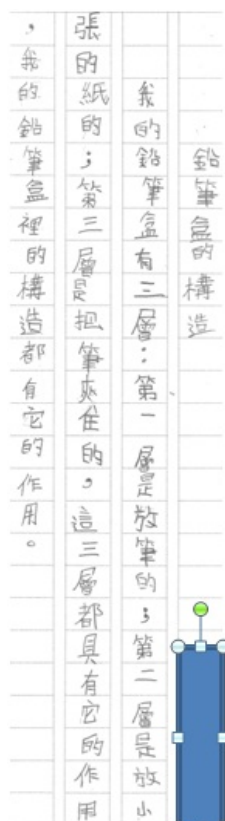 鉛筆盒的構造
我的鉛筆盒有三層：第一層是放筆的；第二層是放小
張的紙的；第三層是把筆夾住的，這三層都具有它的作用
，我的鉛筆盒裡的構造都有它的作用。